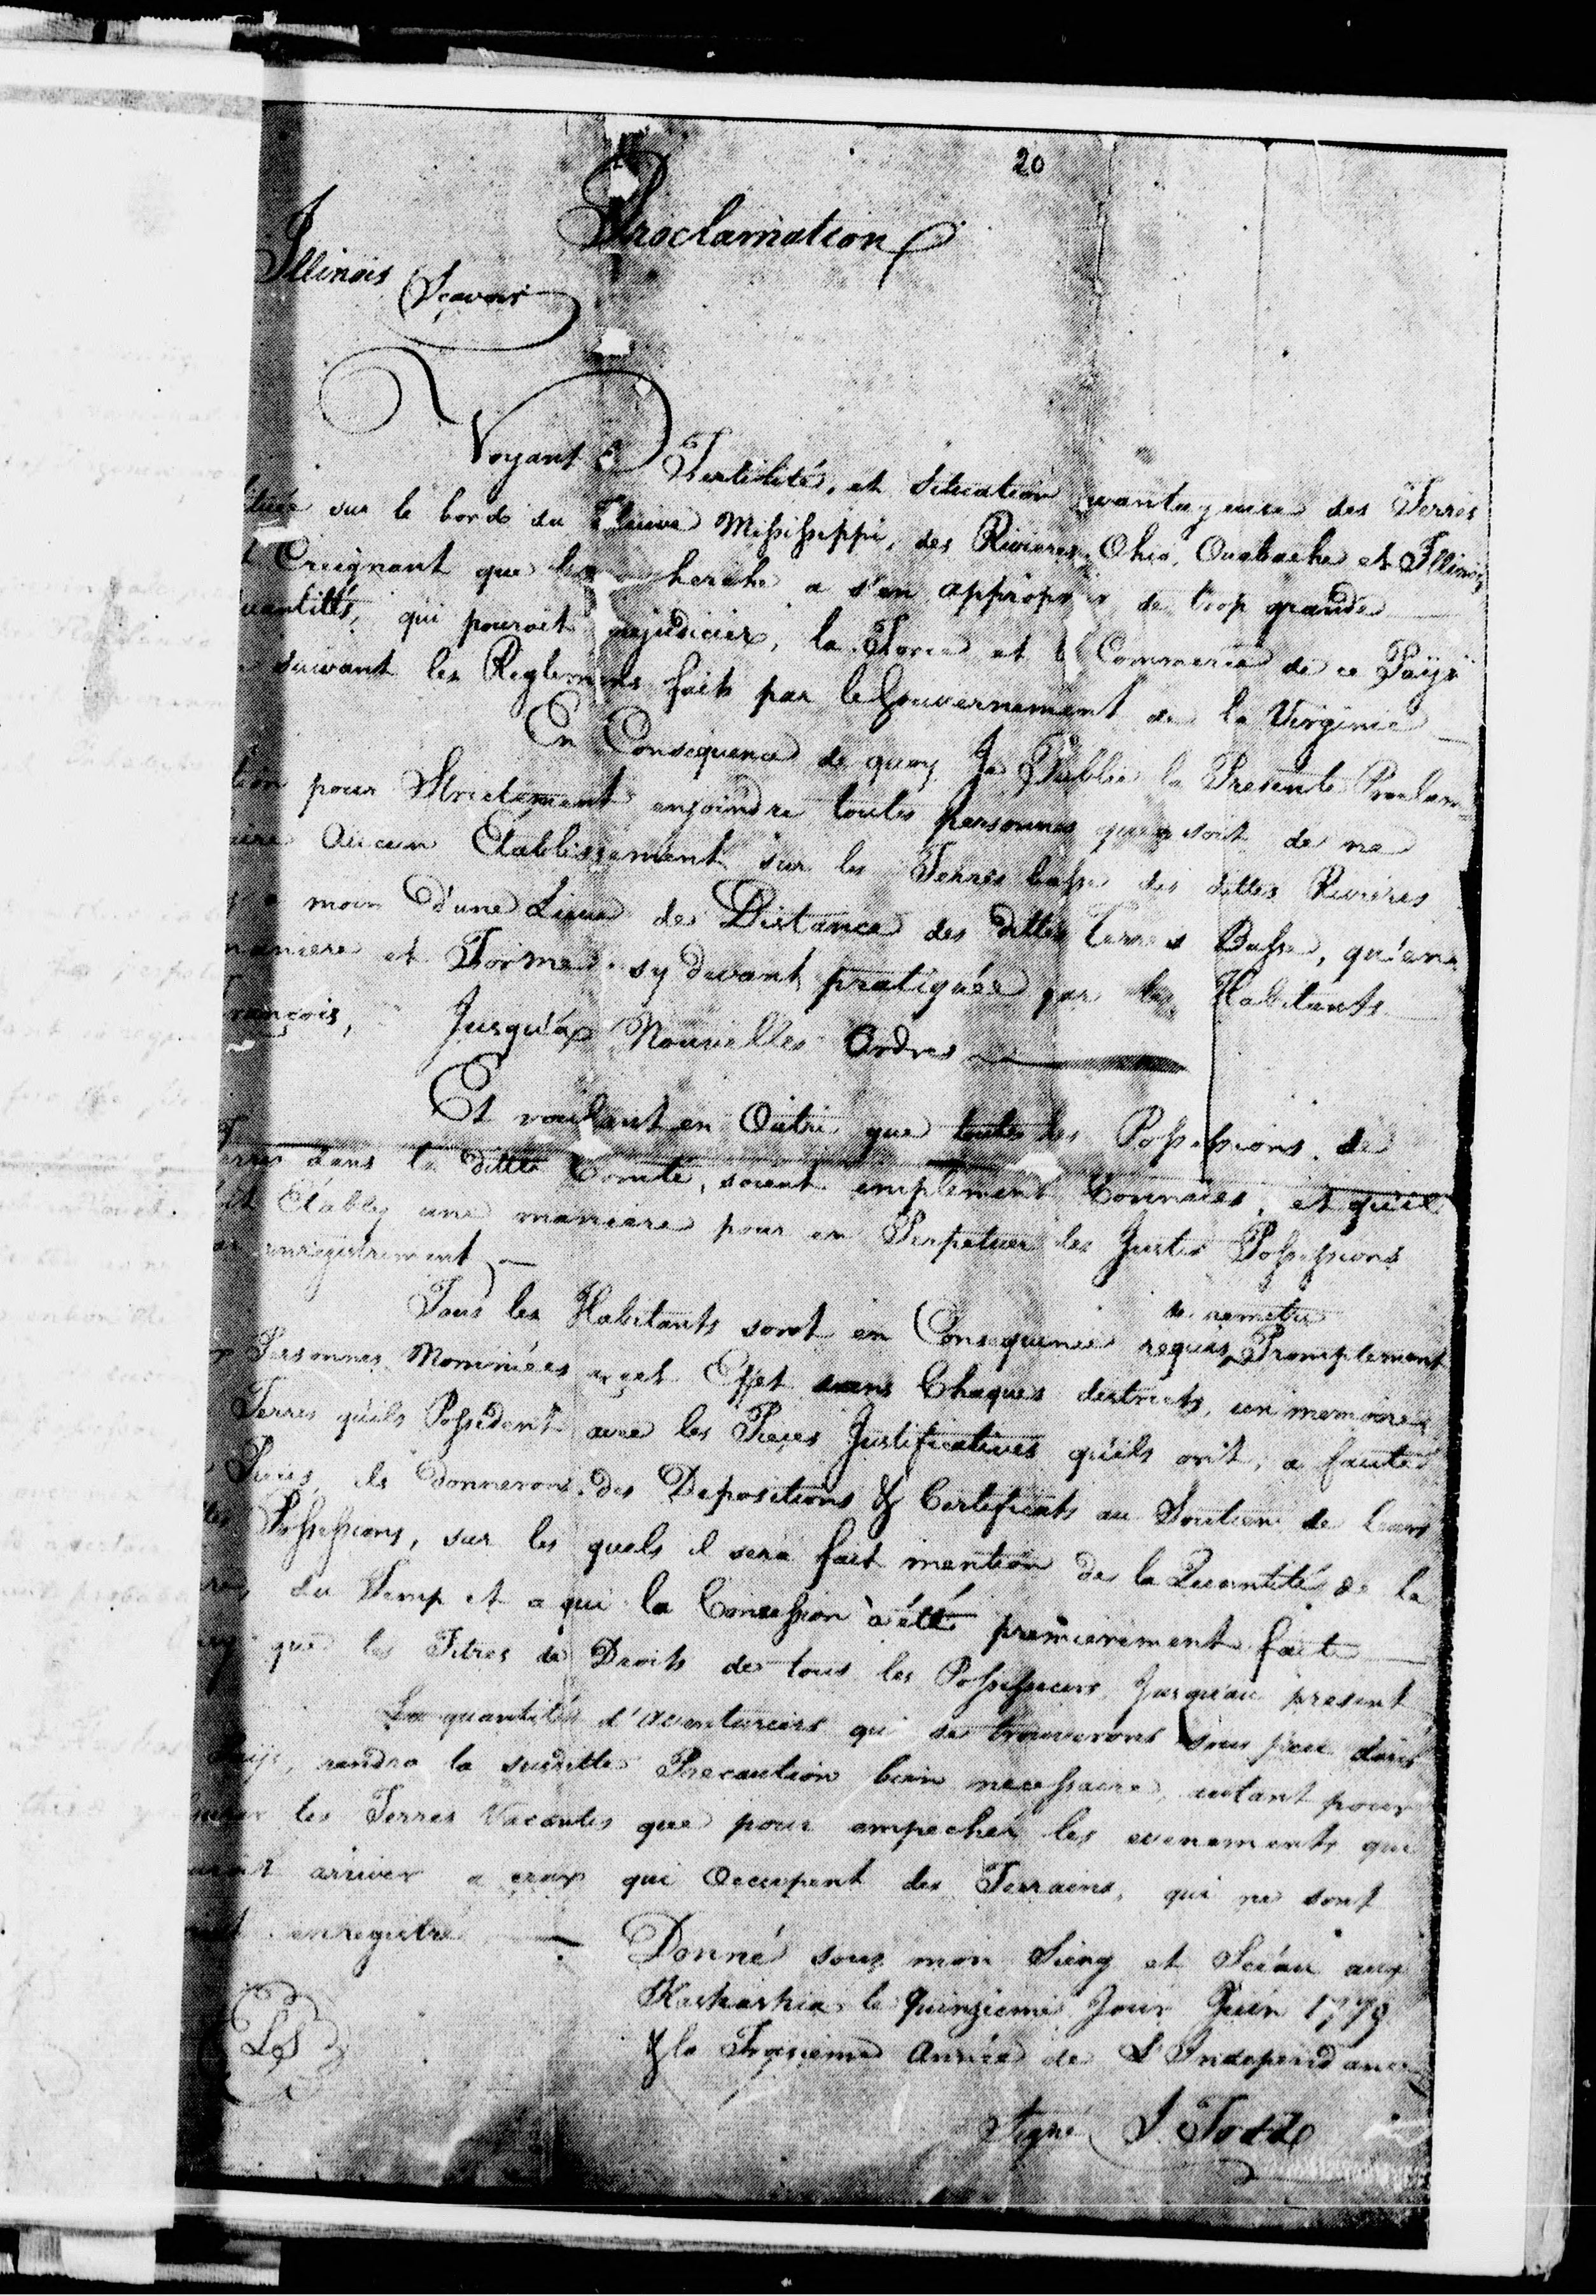 20
Proclamation
Illinois
Sçavoir
Voyant Fertilité, et Situation vantageuse des Terres
ituée sur le bords du Fleuve Mississeppi, des Rivieres Ohio, Ouabache et Illinois
Creignant que herche a s'en approprier de trop grande
uantités, qui pouroit rejudicier, la Force et Commerce de ce Païs
suivant les Reglemens faits par le Gouvernement de la Virginie
En Consequence de quoy Je Publie la Presente Proclam=
tion pour Strictement enjoindre toutes personnes que soit de ne
aire Aucun Etablissement sur les Terres basse des dittes Rivieres
moin D'une Lieue de Distance des dittes Terres Basse, qu'en
maniere et Forme sy devant pratiquée par les Habitants
rançois, Jusqu'a Nouvelles Ordres
Et voulant en Outre que toutes les Possessions de
Terres dans la ditte Comté, soient emplement Connuies, et qu'il
oit Etably une maniere pour en Perpetuer les Justes Possessions
ar enregistrement
Tous les Habitants sont en Consequence requis de remetre Promptement
Personnes Nommées a cet Effet dans Chaques districts, un memoire
Terres qu'ils Possedent avec les Pieces Justificatives qu'ils ont, a faute
Pieces, ils donneront des Depositions & Certificats au Soutien de leurs
Possessions, sur les quels il sera fait mention de la Quantité de la
du Temp et a qui la Concession à été premierement faite
que les Titres de Droits de tous les Possesseurs Jusqu'au present
La quantités d'Aventuriers qui se trouverons sous peu dans
Païs, rendra la suditte Precaution bien necessaire, autant pour
les Terres Vacantes que pour empecher les evenements qui
arriver a ceux qui Occupent des Terrains, qui ne sont
enregistré
Donné sous mon Sieng et Scéau aux
Kaskaskia le Quinzieme Jour Juin 1779
& la Troisieme Année de L'Independance
LS
Signé J. Todd